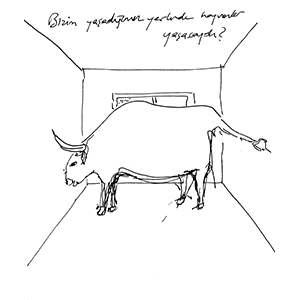 Bizim yaşadığımız yerlerde hayvanlar
yaşasaydı?